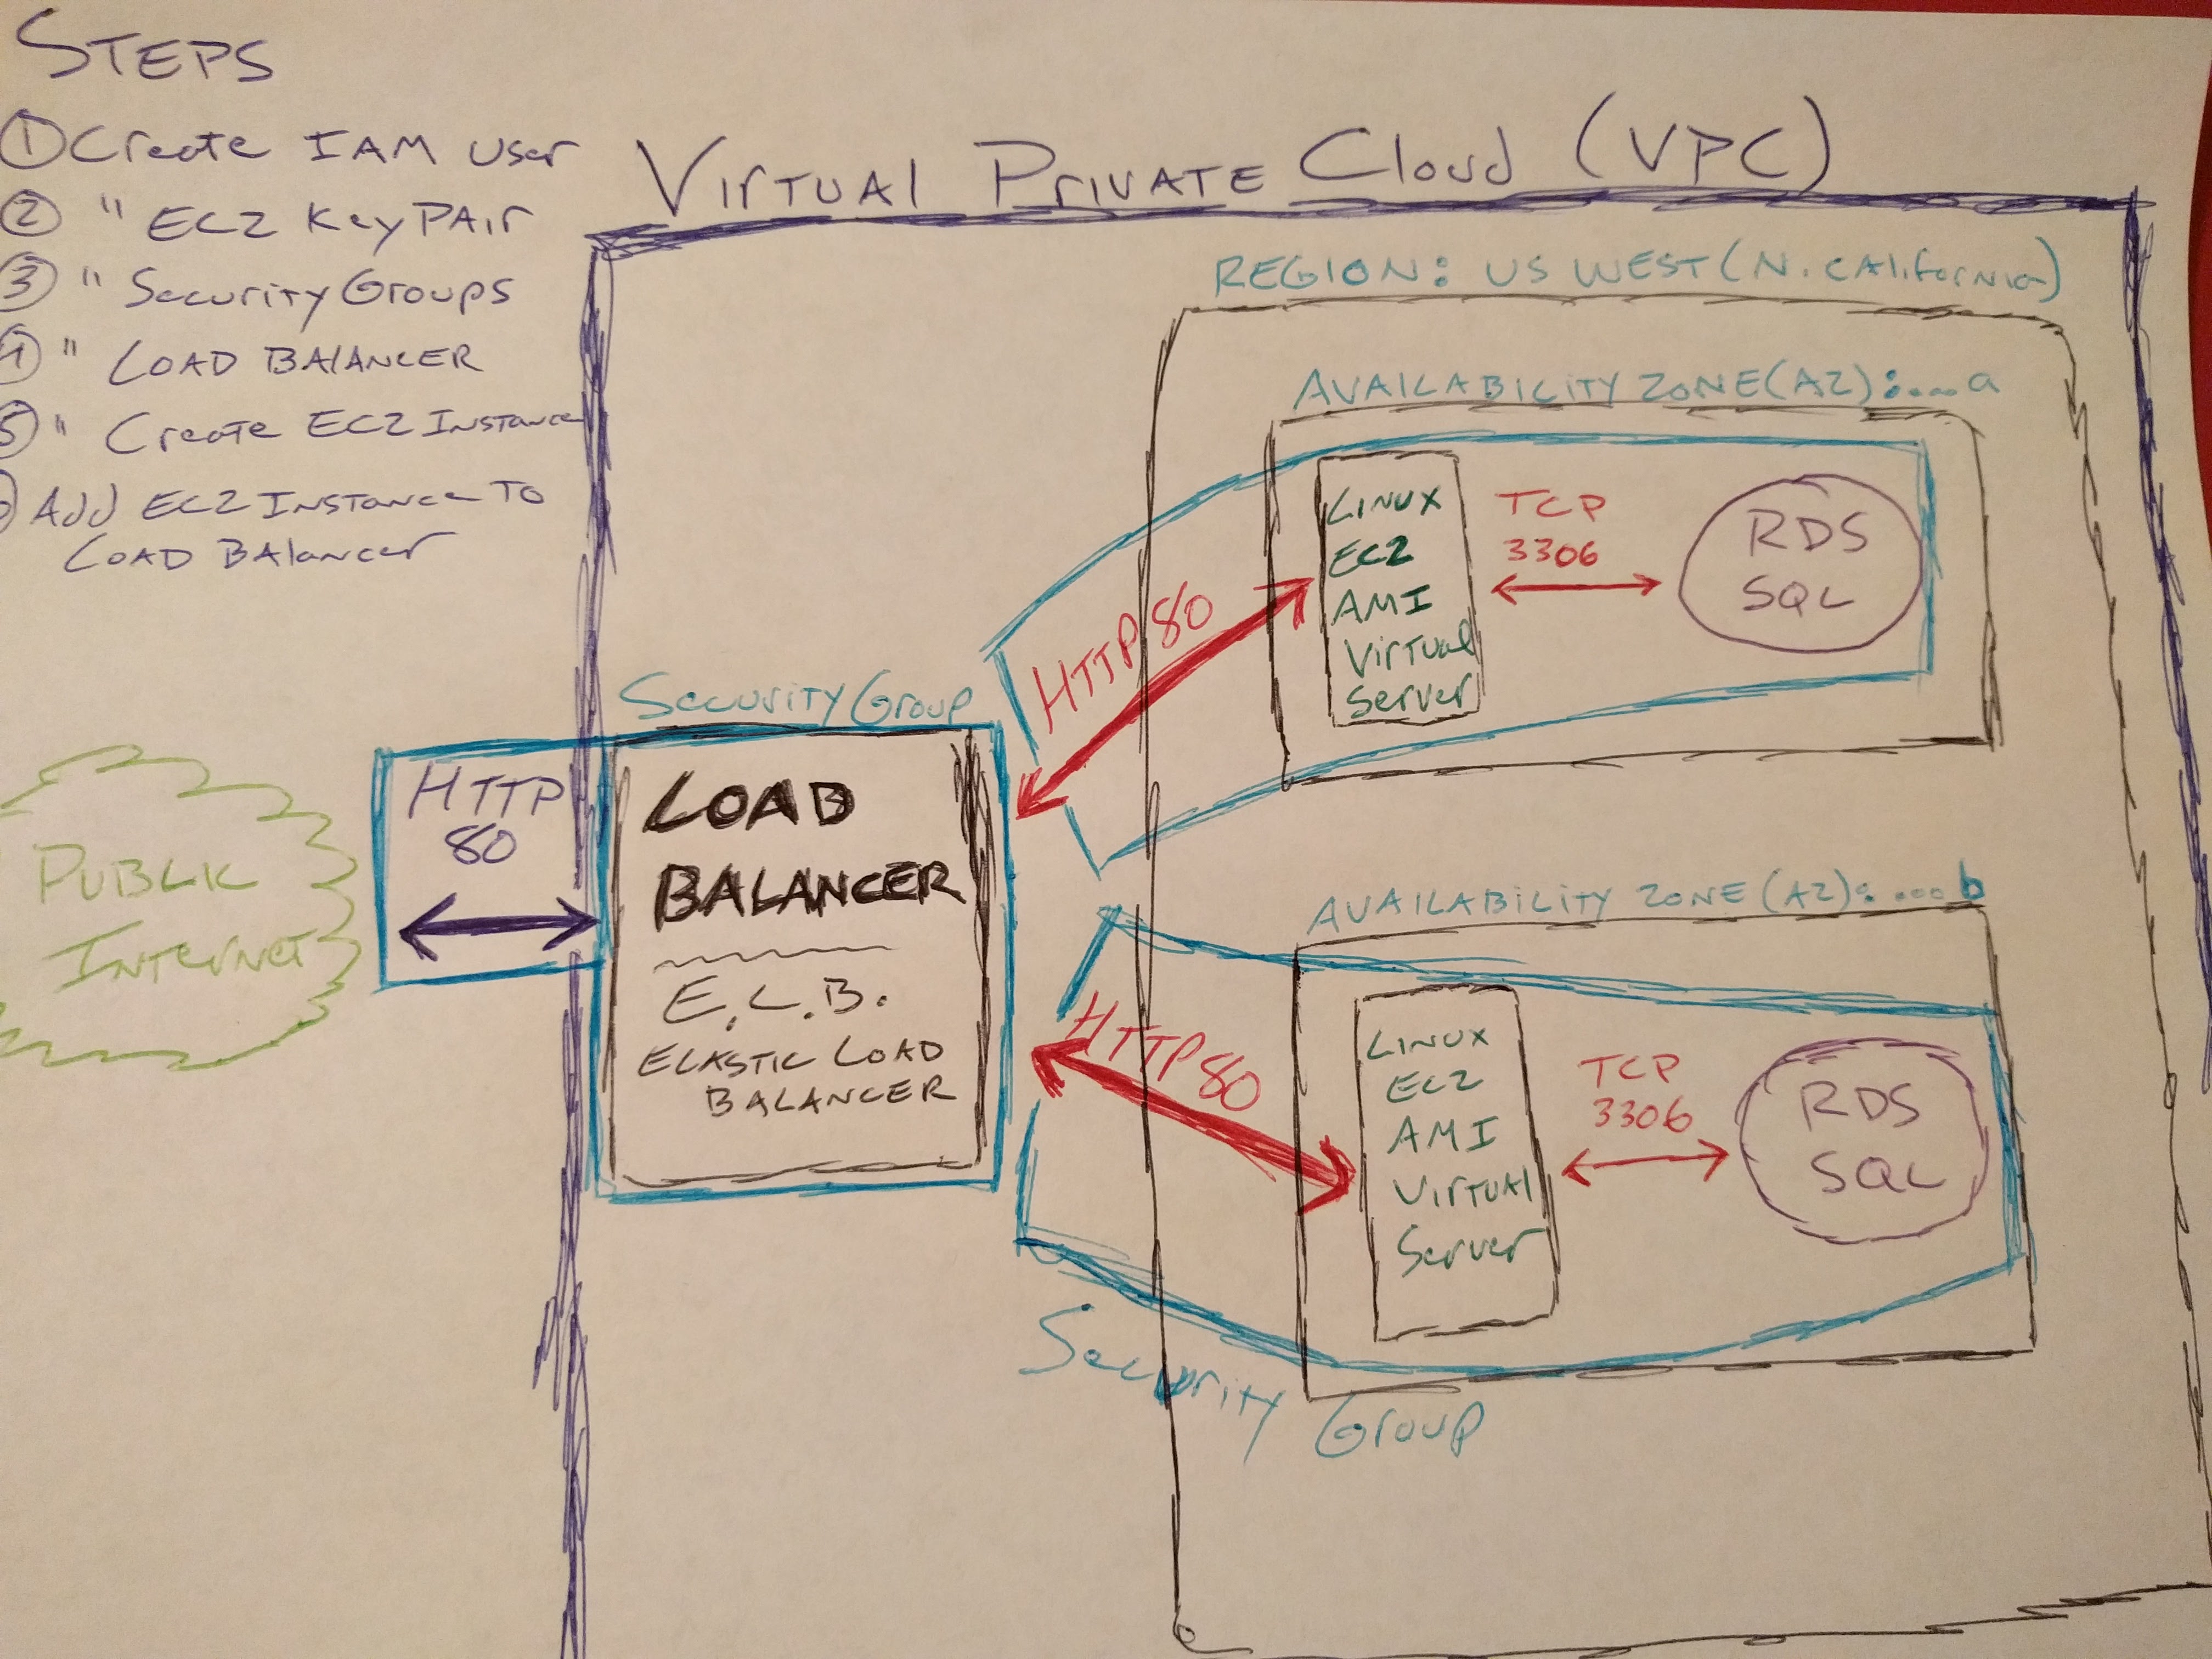 STEPS
① Create IAM user
② " EC2 Key PAir
③ " Security Groups
④ " LOAD BALANCER
⑤ " Create EC2 Instance
Add EC2 Instance To
LOAD BAlancer
Virtual Private Cloud (VPC)
REGION: US WEST (N. CAlifornia)
AVAILABILITY ZONE (AZ):....a
LINUX
EC2
AMI
Virtual
Server
TCP
3306
RDS
SQL
HTTP 80
Security Group
HTTP
80
PUBLIC
INTERNET
LOAD
BALANCER
E.L.B.
ELASTIC LOAD
BALANCER
AVAILABILITY ZONE (AZ):....b
HTTP 80
LINUX
EC2
AMI
VIRTUAL
Server
TCP
3306
RDS
SQL
Security Group